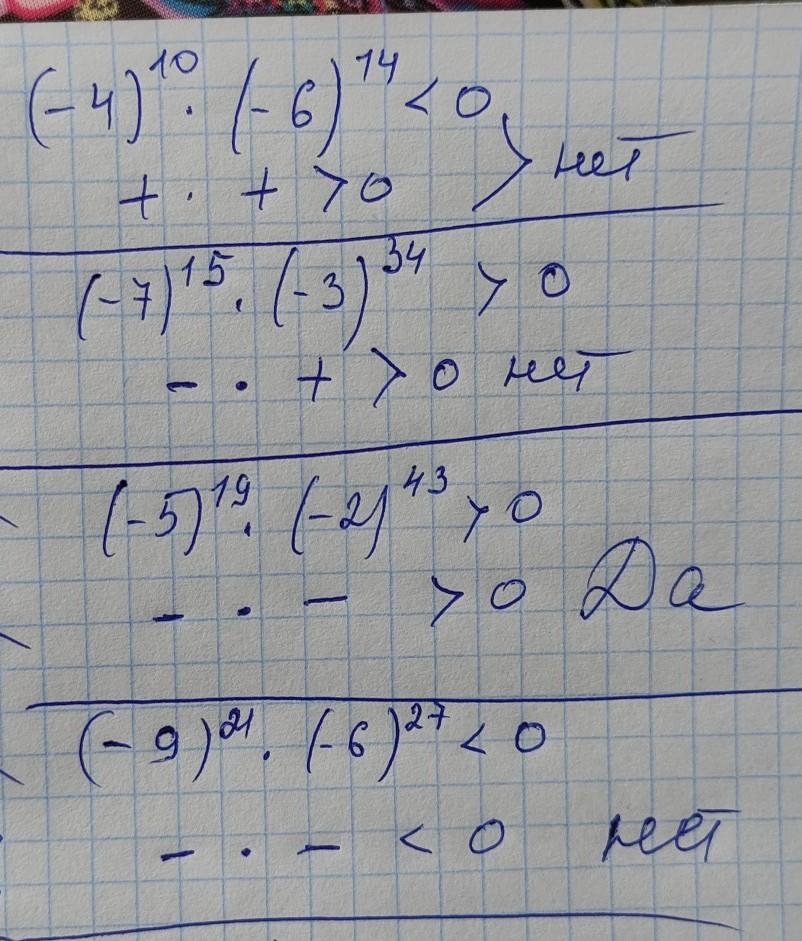 (-4)¹⁰ · (-6)¹⁴ < 0
+ · + > 0 > нет
(-7)¹⁵ · (-3)³⁴ > 0
- · + > 0 нет
(-5)¹⁹ · (-2)⁴³ > 0
- · - > 0 Да
(-9)²¹ · (-6)²⁷ < 0
- · - < 0 нет